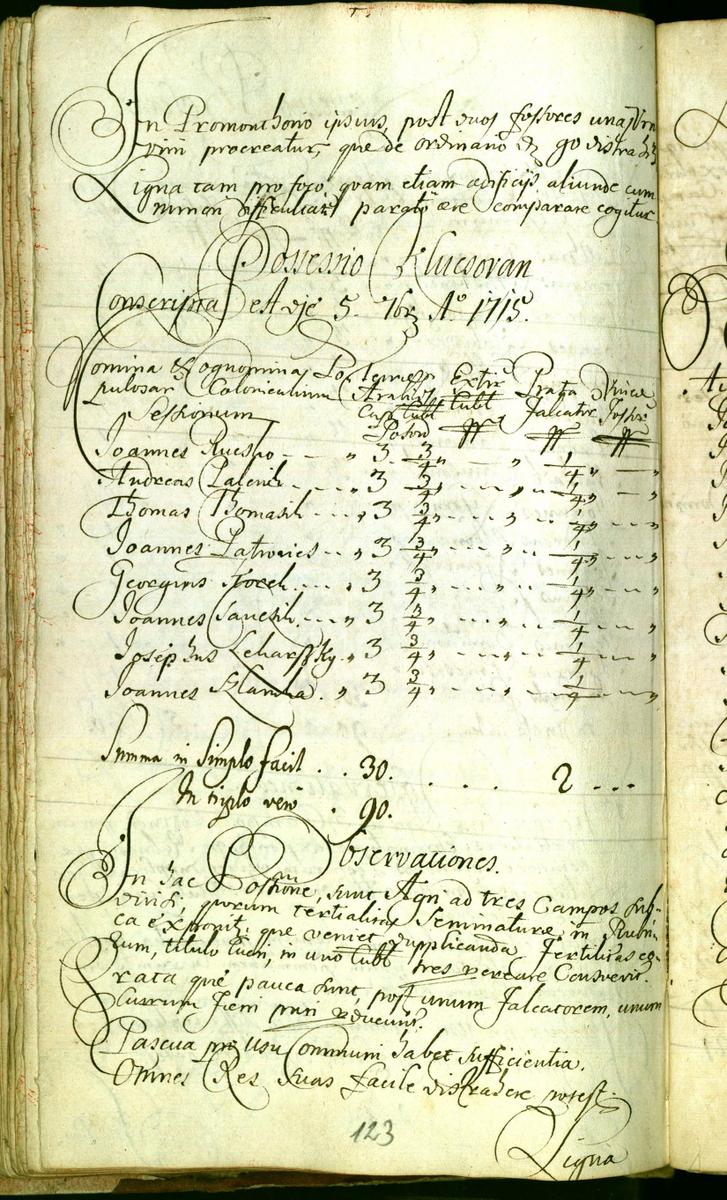 In Promonthorio ipsius, post duos fossores una
vini procreatur, que de ordinario d. 90 distrahi
Ligna tam pro foco, quam etiam aedificijs, aliunde cum
nimia difficultate parato aere comparare cogitur
Possessio Klucsovan
Conscripta est die 5. 7br A° 1715.
Nomina & Cognomina Po-
pulosar Colonicalium
Sessionum
Terrestr Arabilis Capt Cubl Posony
Extir Cubl
Prata Falcator
Vinea Fossor
Joannes " 3 3/4 " 1/4 "
Andreas Palenik " 3 3/4 " 1/4 "
Thomas Thomasik " 3 3/4 " 1/4 "
Joannes Patrovics " 3 3/4 " 1/4 "
Georgius " 3 3/4 " 1/4 "
Joannes " 3 3/4 " 1/4 "
Josephus " 3 3/4 " 1/4 "
Joannes " 3 3/4 " 1/4 "
Summa in Simplo facit . . 30. . . . . 2 . . .
In triplo vero . 90.
Observationes.
In hac Possione, sunt Agri ad tres Campos sub-
divisi, quorum tertialitas Seminature in Rubri-
ca exponitr: que veniet dupplicanda, fertilitas eg-
zum, titulo in uno Cubl tres reddere Consvevit.
Prata que pauca sunt, post unum Falcatorem, unum
Currum feni producunt.
Pascua pro usu Communi habet sufficientia.
Omnes Res suas facile distrahere potest.
123
Ligna